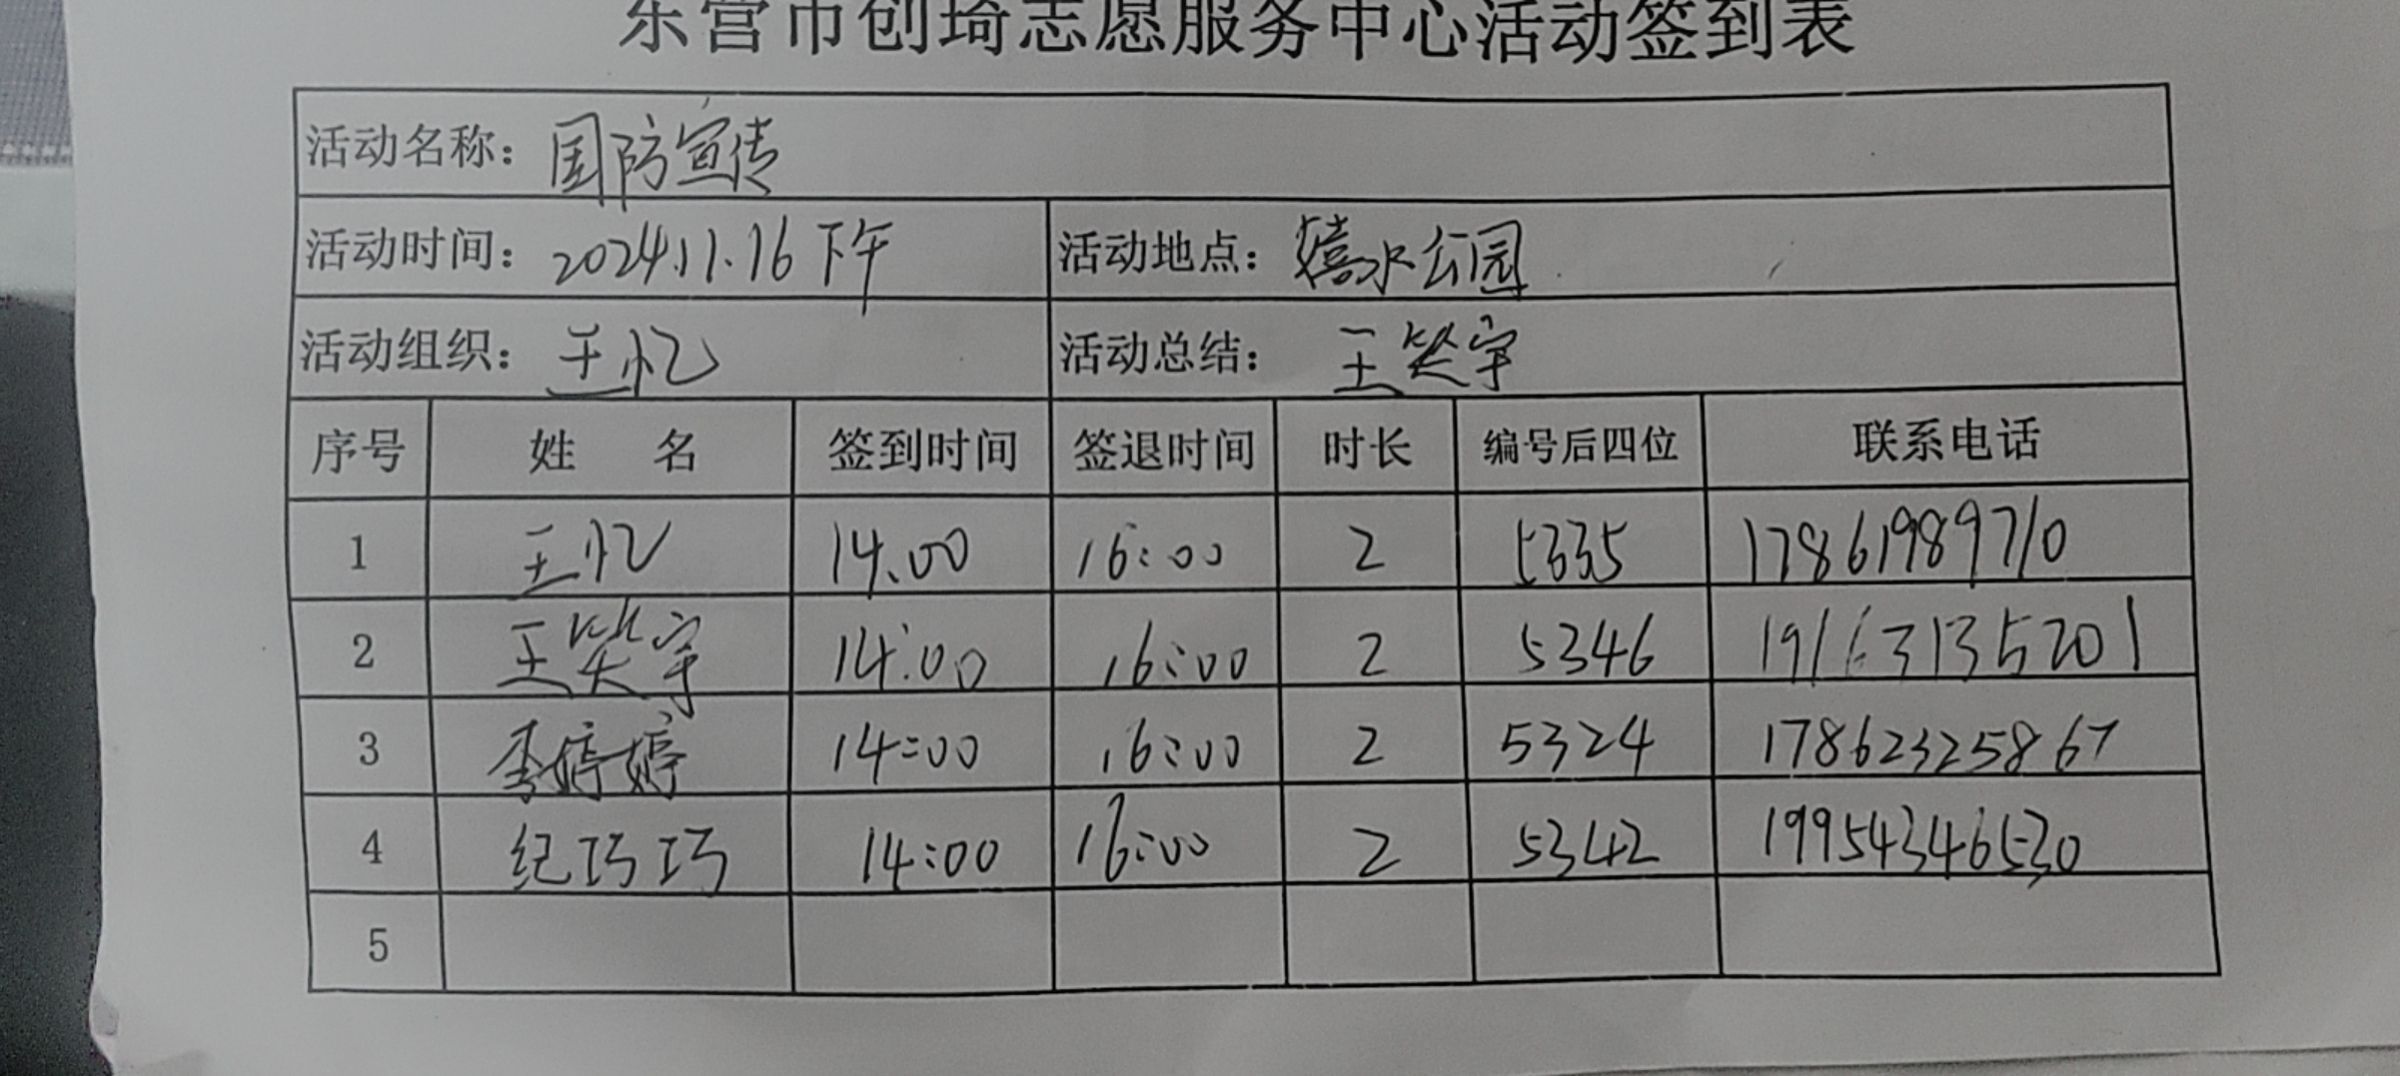 东营市创琦志愿服务中心活动签到表
活动名称：国防宣传
活动时间：2024.11.16下午 活动地点：嬉水公园
活动组织：王忆 活动总结：王笑宇
序号 姓名 签到时间 签退时间 时长 编号后四位 联系电话
1 王忆 14.00 16:00 2 5335 17861989710
2 王笑宇 14:00 16:00 2 5346 19163135201
3 李婷婷 14:00 16:00 2 5324 17862325867
4 纪巧巧 14:00 16:00 2 5342 19954346530
5